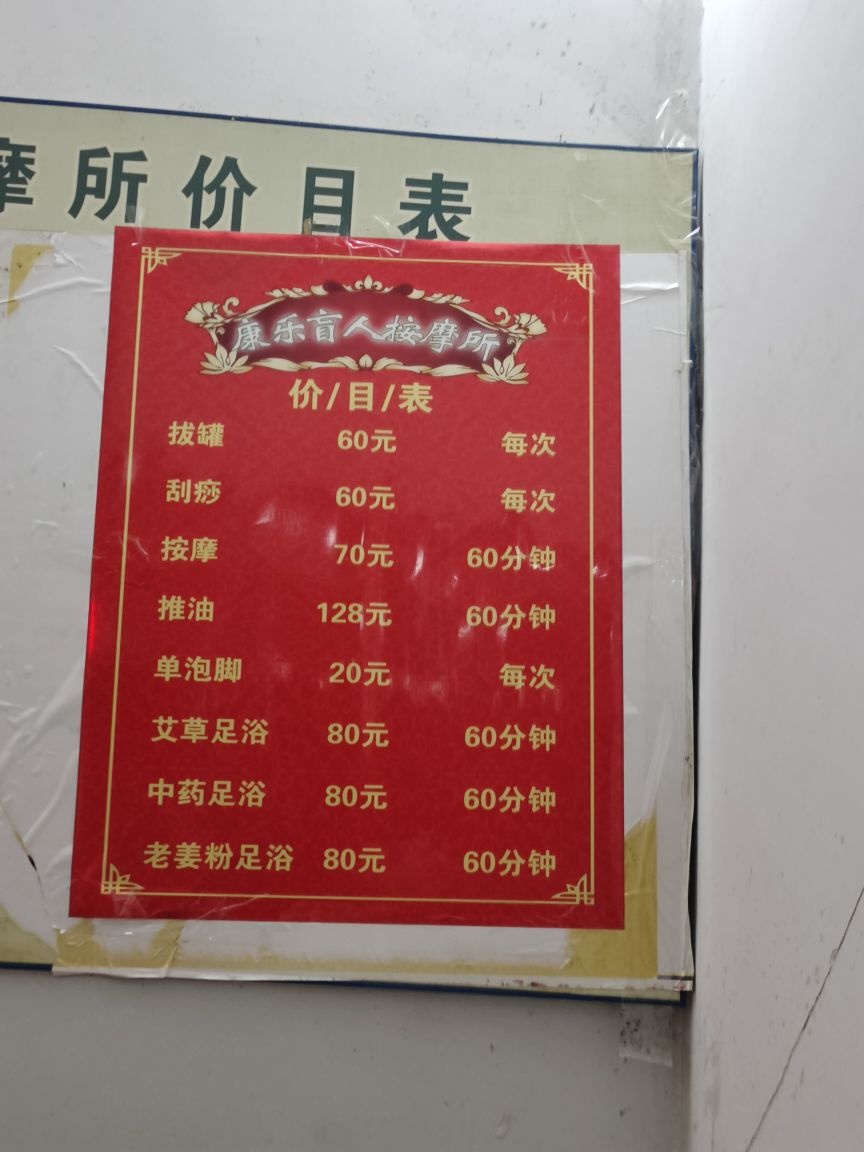 摩所价目表
康乐盲人按摩所
价/目/表
拔罐 60元 每次
刮痧 60元 每次
按摩 70元 60分钟
推油 128元 60分钟
单泡脚 20元 每次
艾草足浴 80元 60分钟
中药足浴 80元 60分钟
老姜粉足浴 80元 60分钟